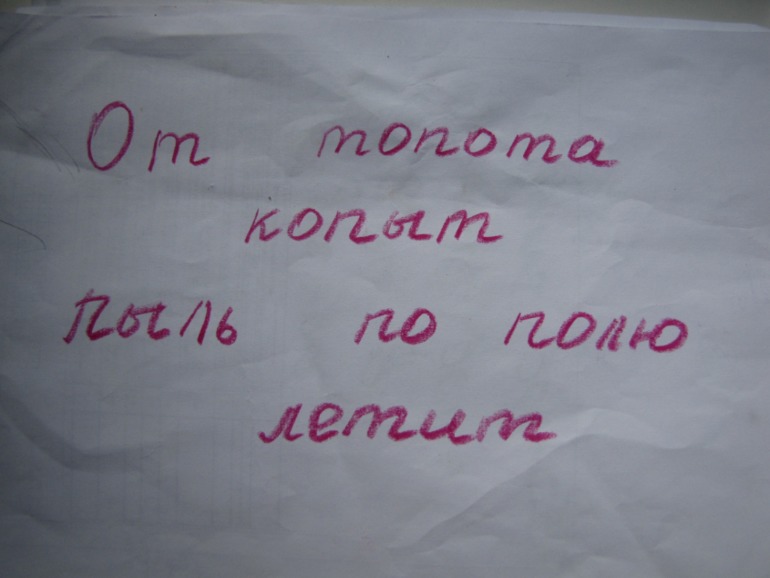 От топота
копыт
пыль по полю
летит